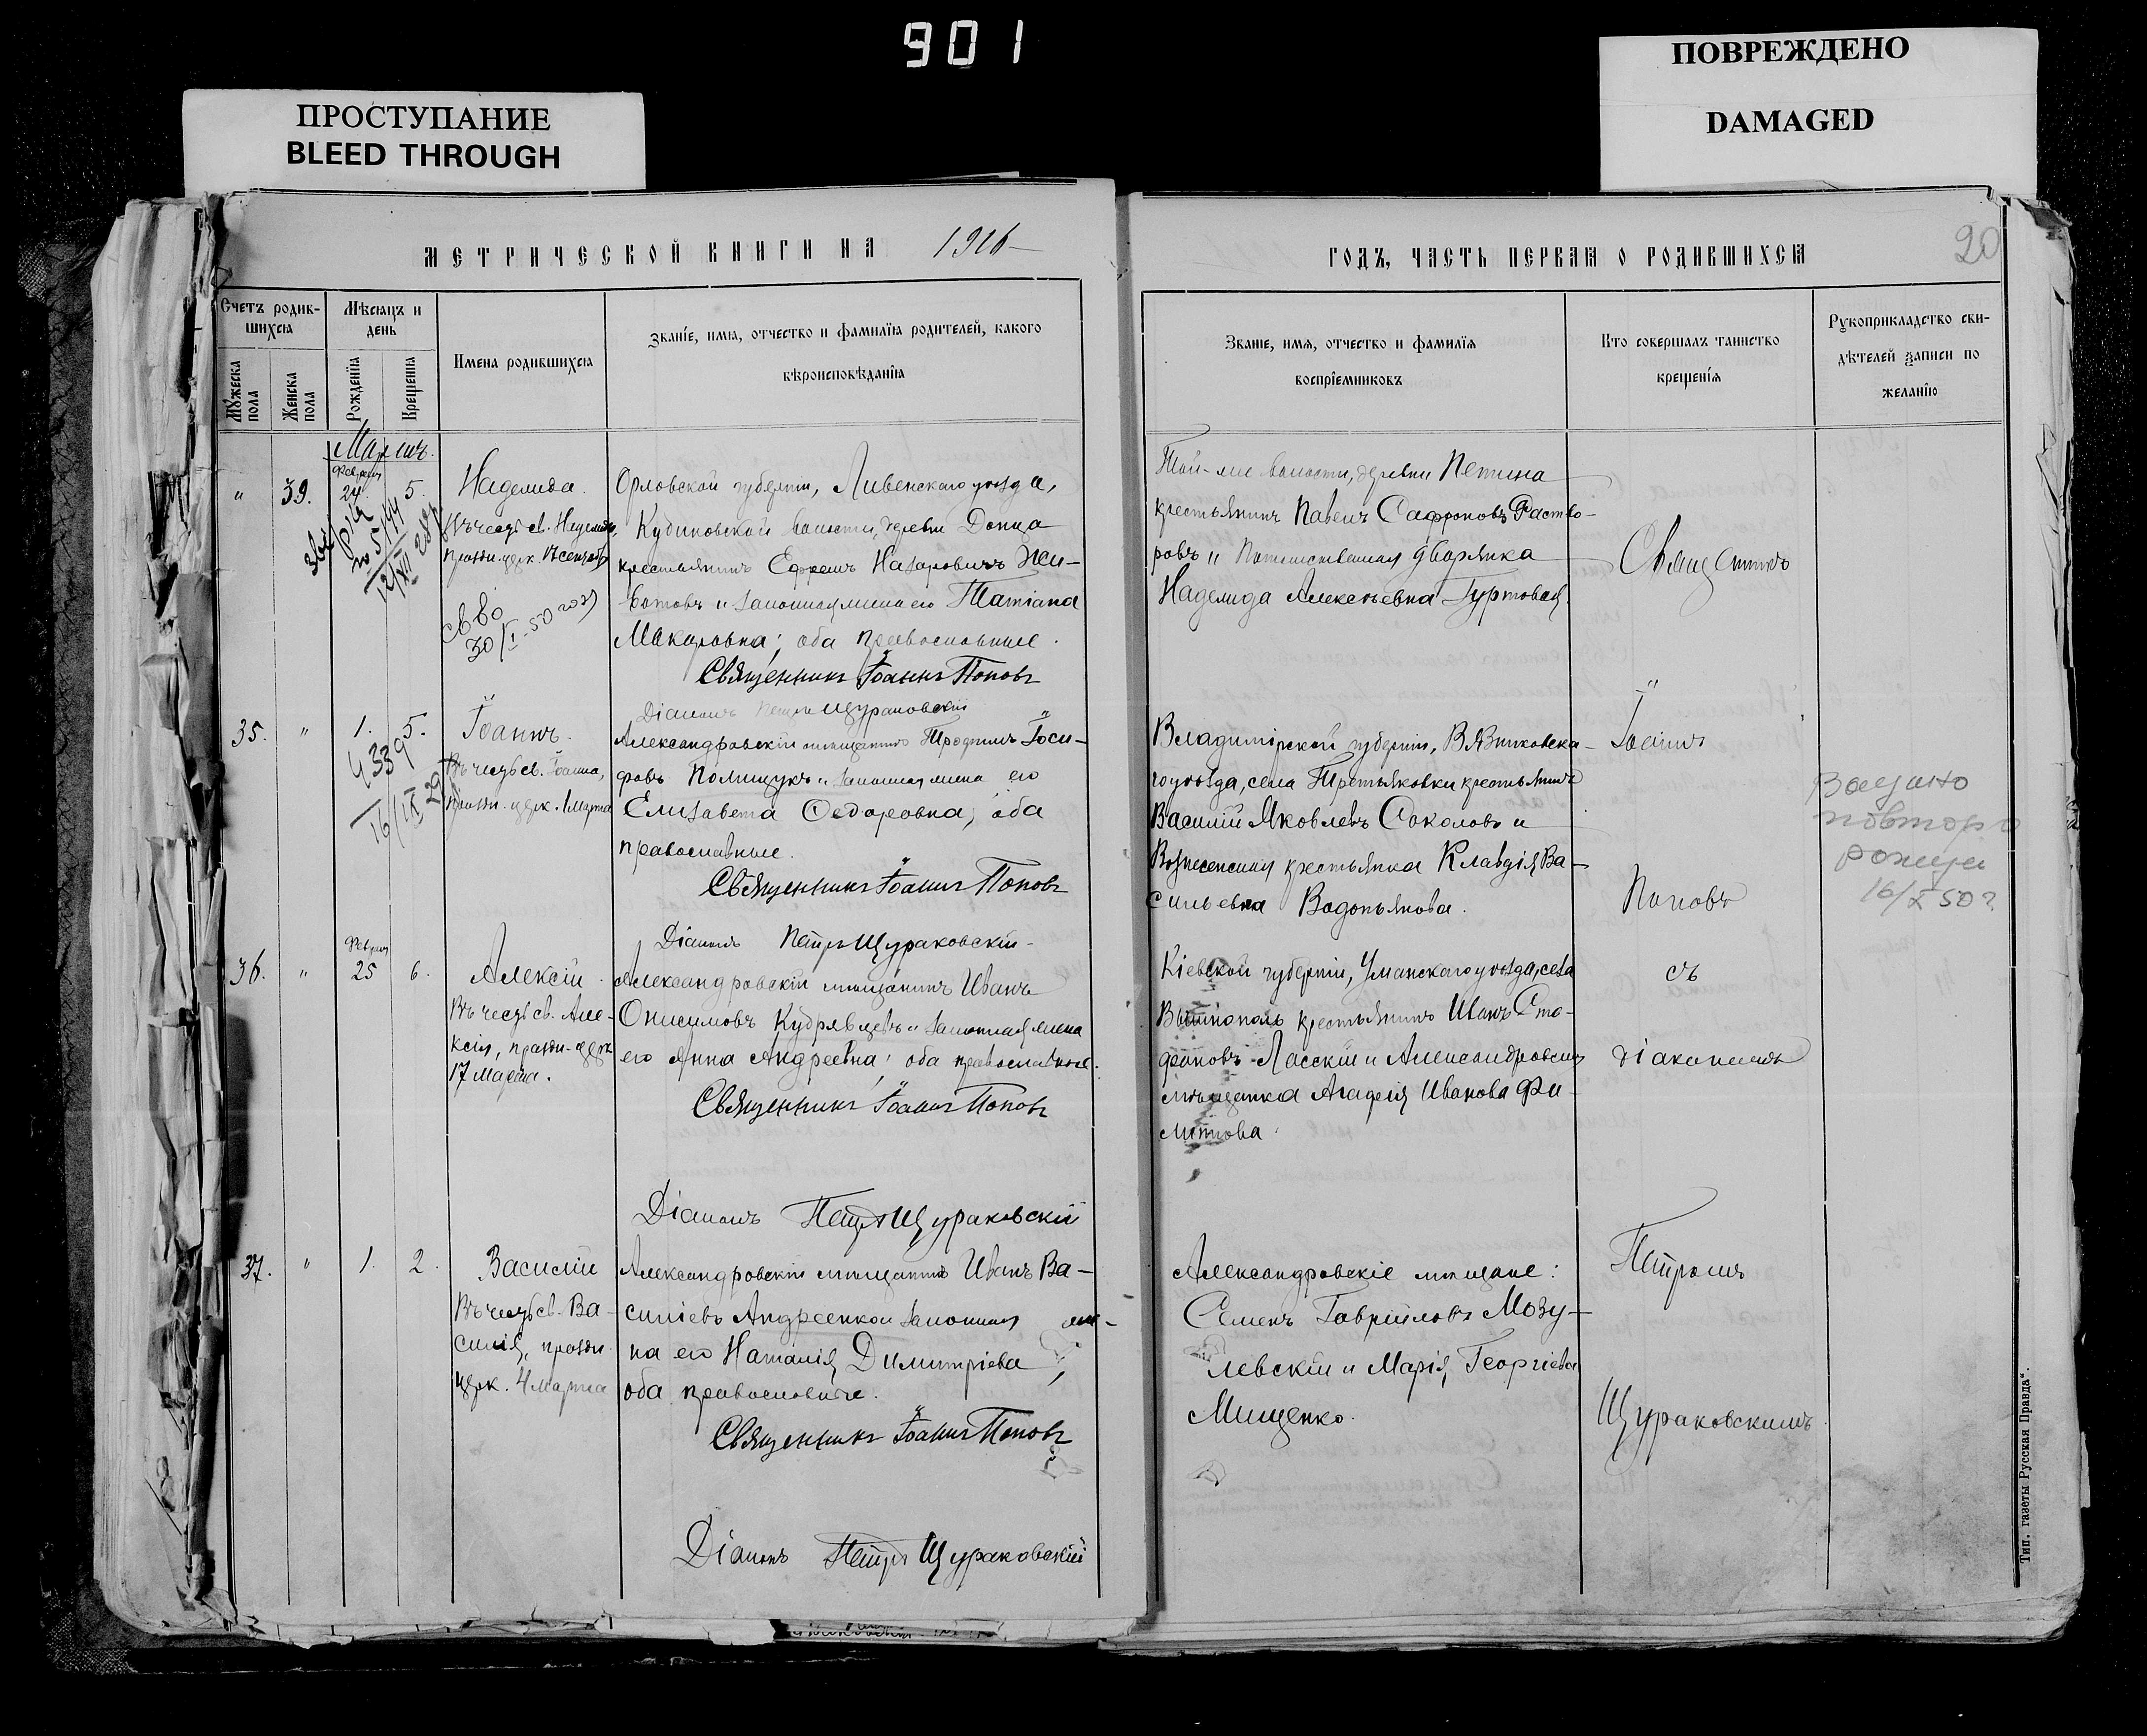 901
ПРОСТУПАНИЕ
BLEED THROUGH
ПОВРЕЖДЕНО
DAMAGED
МЕТРИЧЕСКОЙ КНИГИ НА 1916
Счетъ родившихся
Мѣсяцъ и день
Мужеска пола
Женска пола
Рожденія
Крещенія
Имена родившихся
Званіе, имя, отчество и фамилія родителей, какого
вѣроисповѣданія
Мартъ.
" 39. Февраля 24. 5.
Надежда
Въ честь св. Надежды,
праздн. церк. 17 сентября
30/I-50
Орловской губерніи, Ливенскаго уѣзда,
волости, деревни Донца
крестьянинъ Ефремъ Назаровичъ Жи-
вотовъ и законная жена его Татіана
Макаровна; оба православные.
Священникъ Іоаннъ Поповъ
Діаконъ Петръ Щураковскій
35. " 1. 5.
4339
16/IX 29
Іоаннъ.
Въ честь св. Іоанна,
праздн. церк. 1 марта
Александровскій мѣщанинъ Трофимъ Іоси-
фовъ Полищукъ и законная жена его
Елизавета Ѳедоровна, оба
православные.
Священникъ Іоаннъ Поповъ
Діаконъ Петръ Щураковскій
36. " Февраля 25 6.
Алексій
Въ честь св. Але-
ксія, праздн. церк
17 Марта.
Александровскій мѣщанинъ Иванъ
Онисимовъ Кудрявцевъ и законная жена
его Анна Андреевна; оба православные.
Священникъ Іоаннъ Поповъ
Діаконъ Петръ Щураковскій
37. " 1. 2.
Василій
Въ честь св. Ва-
силія, праздн.
церк. 4 марта
Александровскій мѣщанинъ Иванъ Ва-
силіевъ Андреенко и законная же-
на его Наталія Димитріева;
оба православные.
Священникъ Іоаннъ Поповъ
Діаконъ Петръ Щураковскій
ГОДЪ, ЧАСТЬ ПЕРВАЯ О РОДИВШИХСЯ
20
Званіе, имя, отчество и фамилія
воспріемниковъ
Кто совершалъ таинство
крещенія
Рукоприкладство сви-
дѣтелей записи по
желанію
Той-же волости, деревни Петина
крестьянинъ Павелъ Сафроновъ Раство-
ровъ и Потомственная дворянка
Надежда Алексѣевна Гуртовая.
Владимірской губерніи, Вязниковска-
го уѣзда, села Третьяковки крестьянинъ
Василій Яковлевъ Соколовъ и
Вознесенская крестьянка Клавдія Ва-
сильевна Водопьянова.
Кіевской губерніи, Уманскаго уѣзда, села
крестьянинъ Иванъ Сте-
фановъ Ласскій и Александровская
мѣщанка Агафія Иванова Фи-
липпова.
Александровскіе мѣщане:
Семенъ Гавріиловъ Мозу-
левскій и Марія Георгіева
Мищенко.
Священникъ
Іоаннъ
Поповъ
съ
діакономъ
Петромъ
Щураковскимъ.
Выдано
повторно
16/X 50 г
Тип. газеты „Русская Правда“.